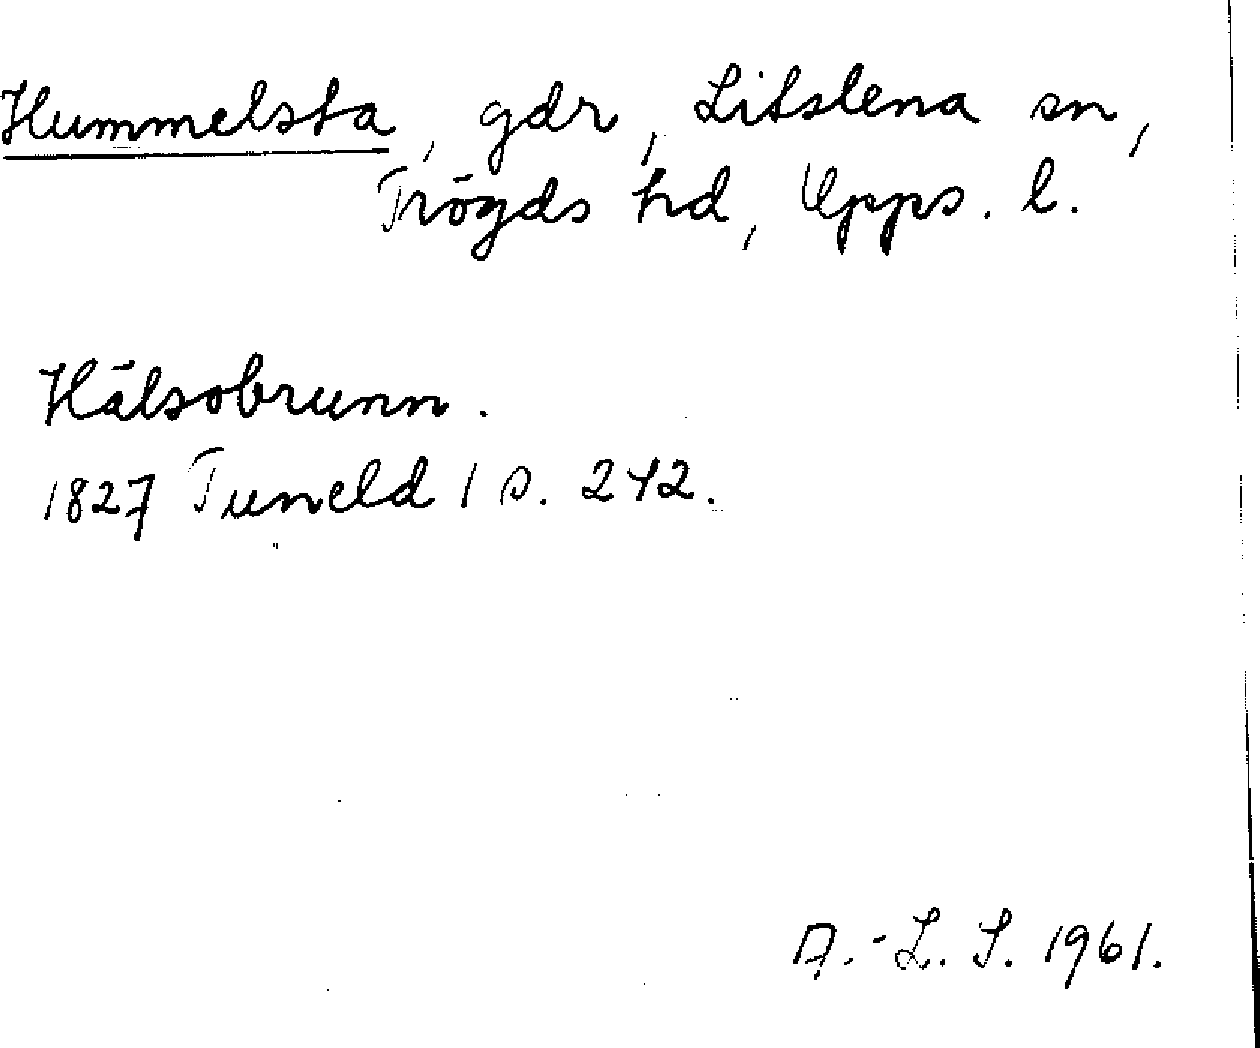 Hummelsta, gdr, Litslena sn,
Trögds hd, Upps. l.
Hälsobrunn.
1827 Tuneld 1 s. 242.
A.-L. S. 1961.